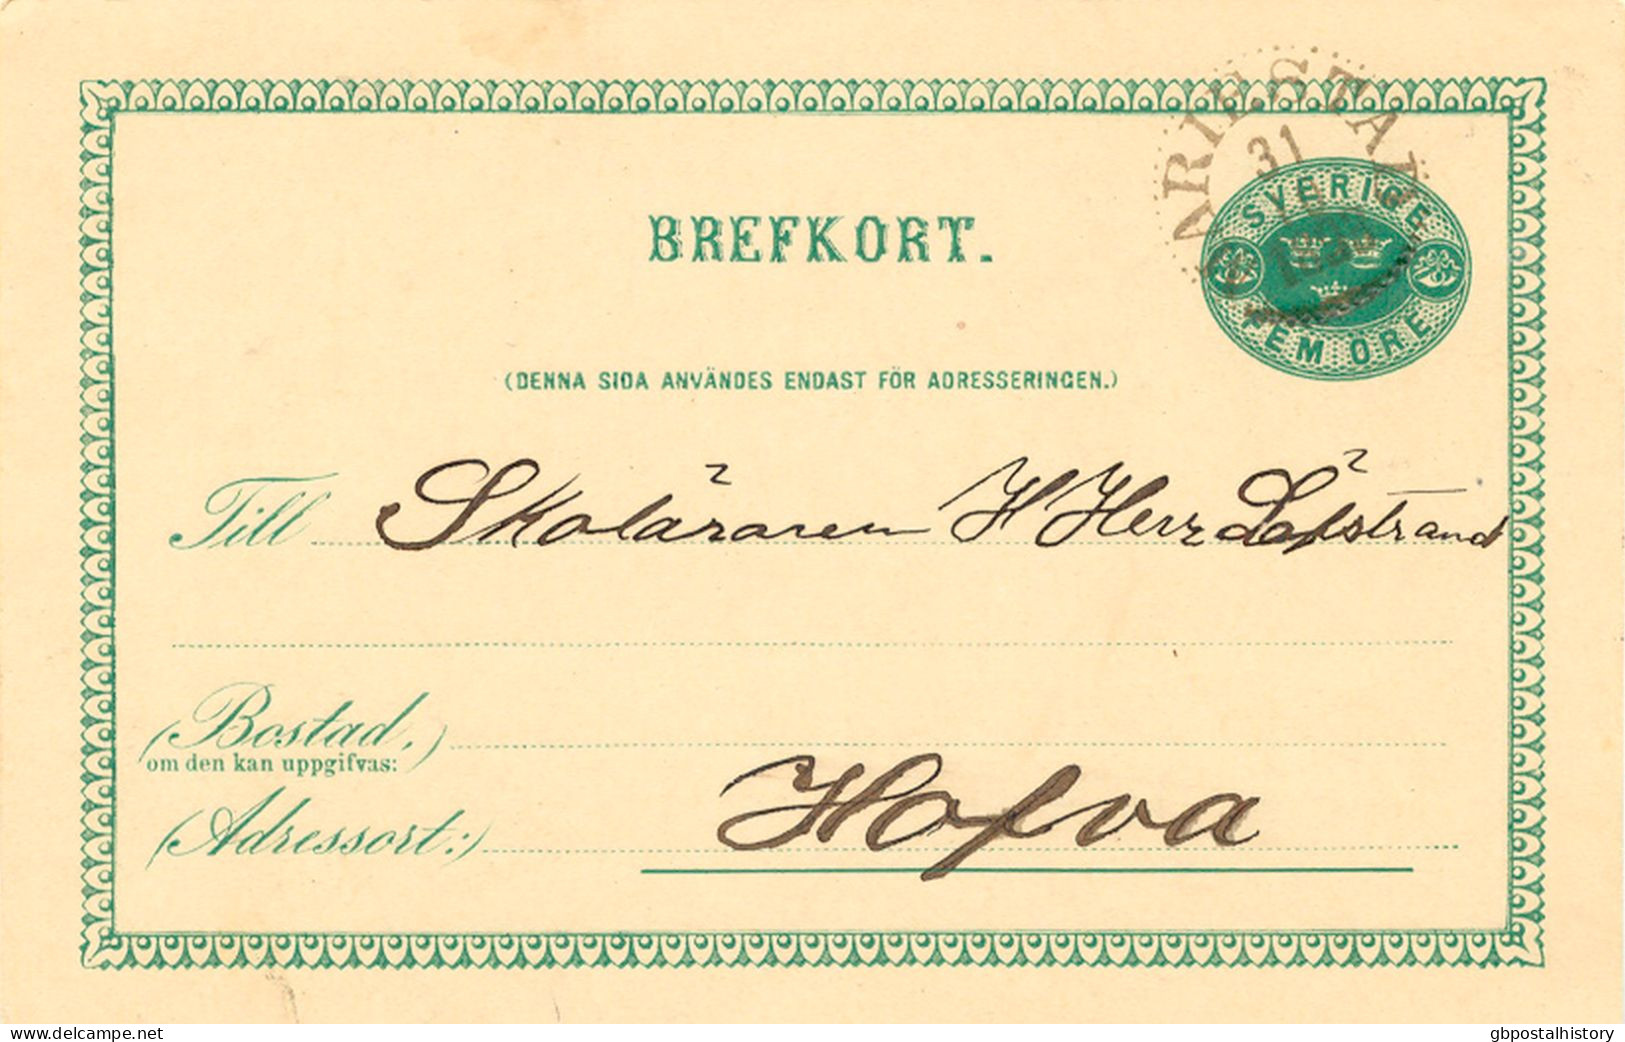 MARIESTAD
31
SVERIGE
FEM ÖRE
BREFKORT.
(DENNA SIDA ANVÄNDES ENDAST FÖR ADRESSERINGEN.)
Till Skolläraren H Herr Löfstrand
(Bostad,)
om den kan uppgifvas:
(Adressort:) Hofva
www.delcampe.net
gbpostalhistory